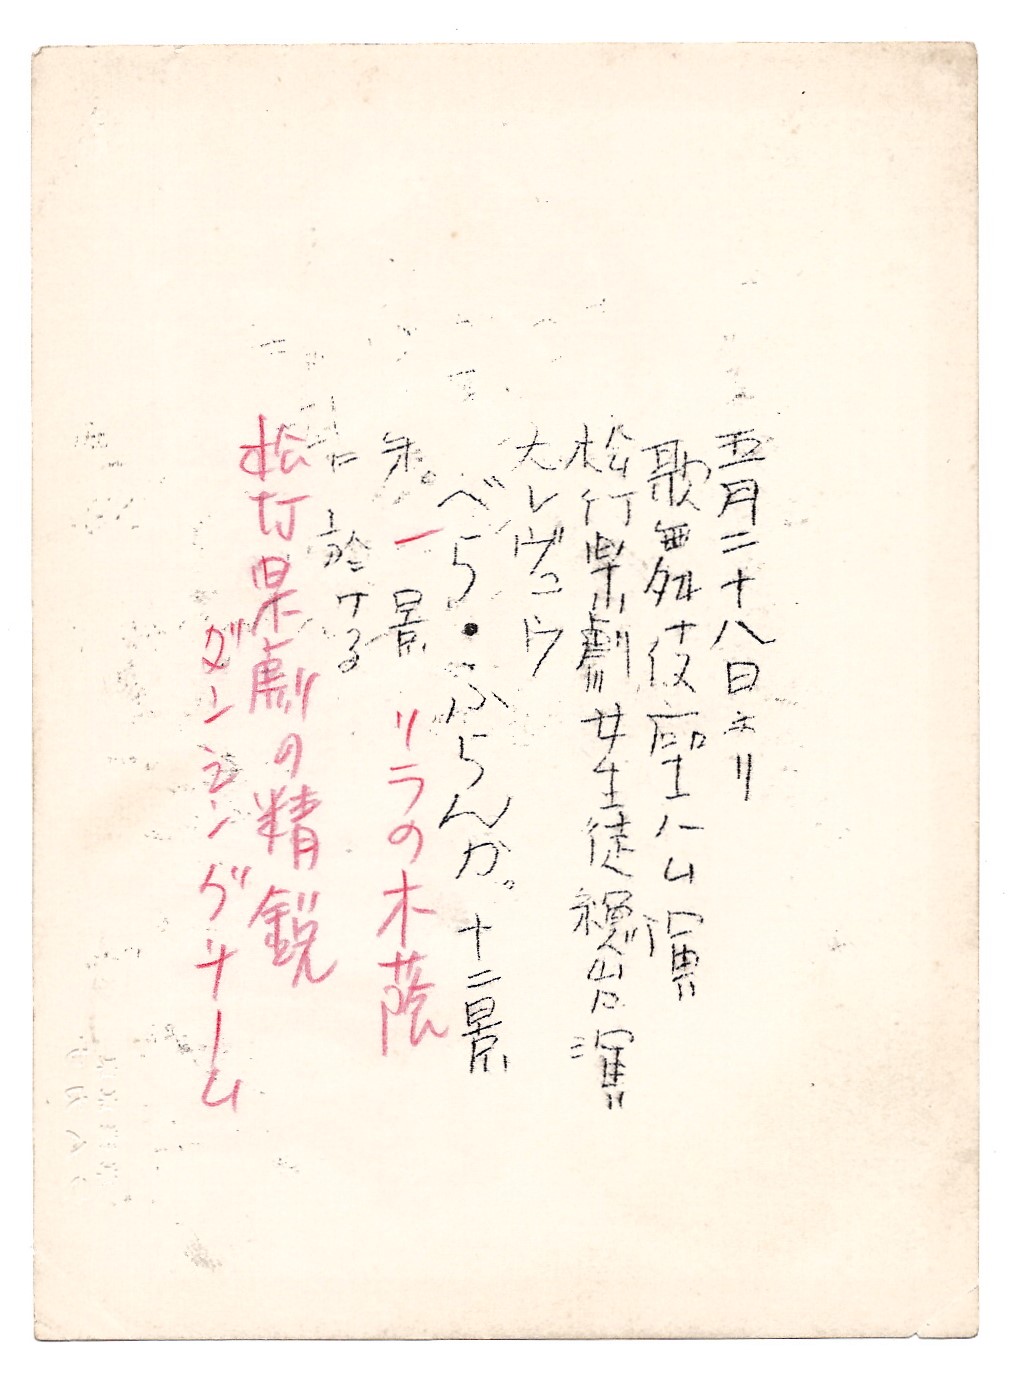 五月二十八日ヨリ
歌舞伎座公演
松竹楽劇女生徒総出演
大レヴュウ
べら・ふらんか。十二景
一景 リラの木蔭
に於ける
松竹楽劇の精鋭
ダンシングチーム